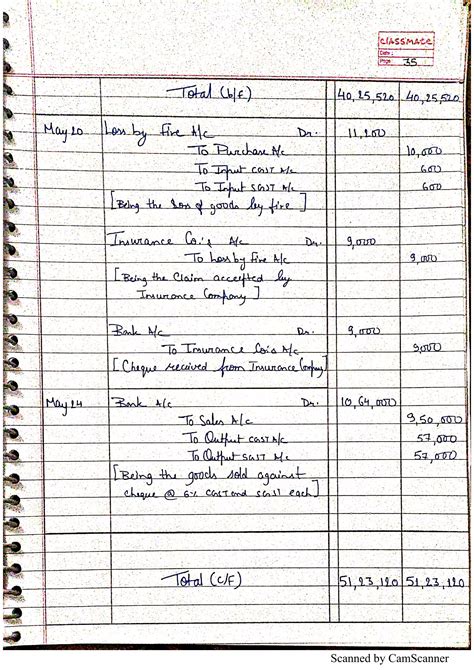 classmate
Date :
Page : 35
Total (b/f) 40,25,520 40,25,520
May 20 Loss by Fire A/c Dr. 11,200
To Purchase A/c 10,000
To Input CGST A/c 600
To Input SGST A/c 600
[Being the loss of goods by fire]
Insurance Co.'s A/c Dr. 9,000
To Loss by Fire A/c 9,000
[Being the claim accepted by
Insurance Company]
Bank A/c Dr. 9,000
To Insurance Co's A/c 9,000
[Cheque received from Insurance Company]
May 24 Bank A/c Dr. 10,64,000
To Sales A/c 9,50,000
To Output CGST A/c 57,000
To Output SGST A/c 57,000
[Being the goods sold against
cheque @ 6% CGST and SGST each]
Total (C/F) 51,23,120 51,23,120
Scanned by CamScanner